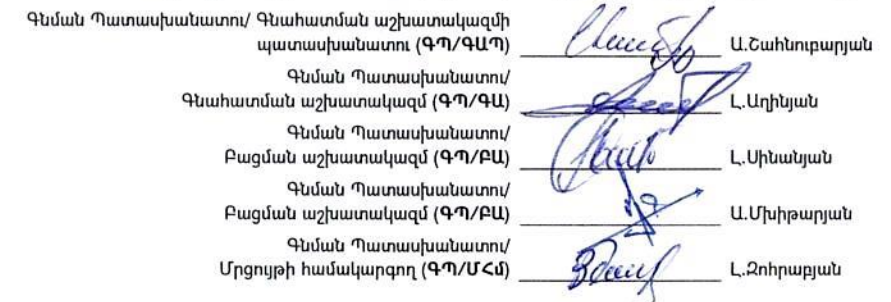 Գնման Պատասխանատու/ Գնահատման աշխատակազմի
պատասխանատու (ԳՊ/ԳԱՊ) Ա.Շահնուբարյան
Գնման Պատասխանատու/
Գնահատման աշխատակազմ (ԳՊ/ԳԱ) Լ.Աղինյան
Գնման Պատասխանատու/
Բացման աշխատակազմ (ԳՊ/ԲԱ) Լ.Սինանյան
Գնման Պատասխանատու/
Բացման աշխատակազմ (ԳՊ/ԲԱ) Ա.Մխիթարյան
Գնման Պատասխանատու/
Մրցույթի համակարգող (ԳՊ/ՄՀմ) Լ.Զոհրաբյան